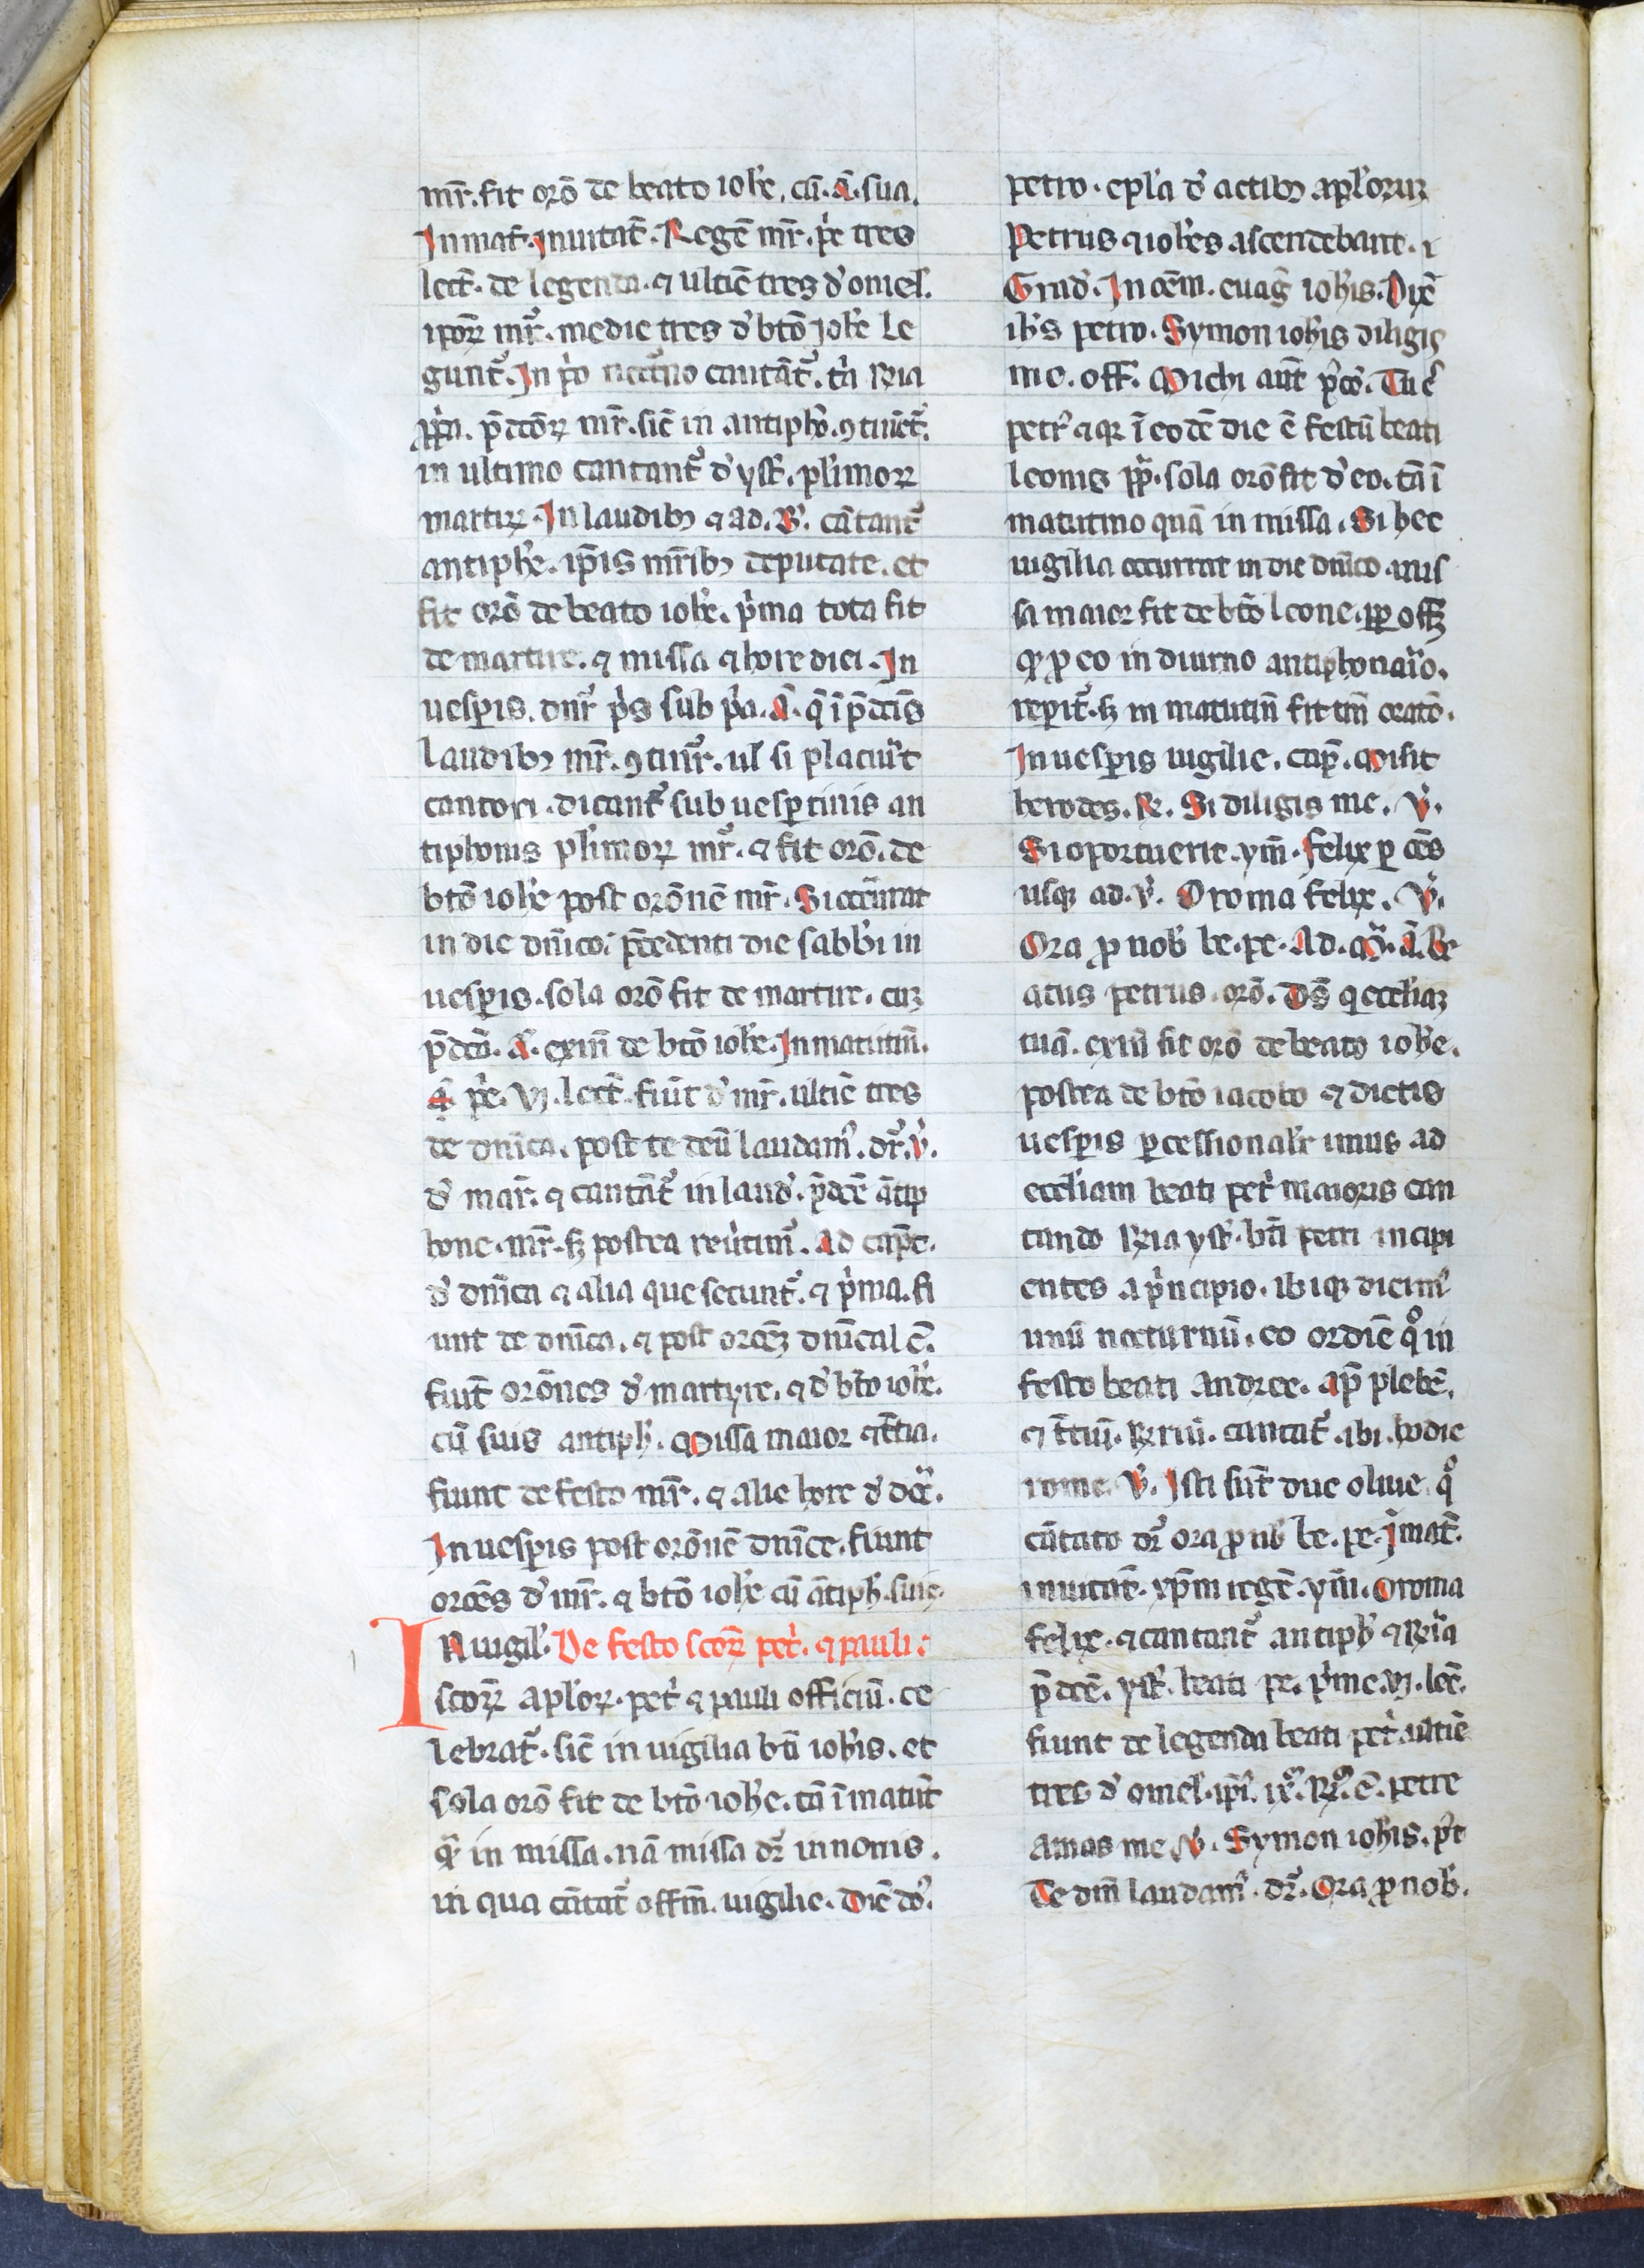 mr̄. fit orō de beato ioh̄e. cū. ā. sua.
In mat̄. inuitat̄. Regē mr̄. p̄e tres
lect̄. de legenda. ⁊ ultīe tres d̓ omel̄.
ipoꝝ mr̄. medie tres d̓ btō ioh̄e le
gunt̄. In p̄o nocturno cantāt̄. t̄n R̄ia
p̄dcōꝝ mr̄. sic̄ in antiph̄o. ꝯtinēt̄.
in ultimo cantant̄ d̓ yst̄. pl̄imoꝝ
martiꝝ. In laudibꝫ ⁊ ad. B̓. cātant̄
antiph̄e. ip̄is mr̄ibꝫ deputate. et
fit orō de beato ioh̄e. p̓ma tota fit
de martire. ⁊ missa ⁊ hore diei. In
uesp̄is. dn̄r p̄s sub p̄a. ā. q̄ ī p̄dcīs
laudibꝫ mr̄. ꝯtinr̄. ul̄ si placuīt
cantori. dicant̄ sub uesp̄tinis an
tiphonis pl̄imoꝝ mr̄. ⁊ fit orō. de
btō ioh̄e post orōnē mr̄. Si occūrat
in die dn̄ico. p̄cedenti die sabb̄i in
uesp̄is. sola orō fit de martire. cuꝫ
p̄dcā. ā. exin̄ de btō ioh̄e. In matutin̄.
ā p̄e. vj. lect̄. fiūt d̓ mr̄. ultīe tres
de dn̄ica. post te deū laudam̄. dr̄. v̓.
d̓ mar̄. ⁊ cantāt̄ in laud̄. p̄dcē ātip
hone. mr̄. sꝫ postea reūtim̄. ad cap̄c.
d̓ dn̄ica ⁊ alia que secunt̄. ⁊ p̓ma. fi
unt de dn̄ica. ⁊ post orōꝫ dn̄ical̄ē.
fiūt orōnes d̓ martyre. ⁊ d̓ btō ioh̄e.
cū suis antiph̄. Missa maior ⁊ t̄tia.
fiunt de festo mr̄. ⁊ alie hore d̓ dcā.
In uesp̄is post orōnē dn̄ice. fiunt
orōes d̓ mr̄. ⁊ btō ioh̄e cū ātiph̄. suis.
IN uigil̄. De festo scoꝝ pet̄. ⁊ pauli:
scoꝝ apl̄oꝝ. pet̄ ⁊ pauli officiū. ce
lebrat̄. sic̄ in uigilia bt̄i ioh̄is. et
sola orō fit de btō ioh̄e. tā ī matut̄
q̄ in missa. nā missa dr̄ in nonis.
in qua cātat̄ offm̄. uigilie. Dic̄ dō.
petro. epl̄a d̓ actibꝫ apl̄oruꝫ
Petrus ⁊ ioh̄es ascendebant. i
Grad̄. In oēm. euāg ioh̄is. Dix̄
ih̄s petro. Symon ioh̄is diligis
me. off̄. Michi aūt p̄cō. Tu ē
petr̄ ⁊ qꝛ ī eodē die ē festū beati
leonis pp̄. sola orō fit d̓ eo. tā ī
matutino quā in missa. Si hec
uigilia occurrat in die dn̄ico. mis
sa maior fit de btō leone. pp̄ off̄ꝫ
qꝫ ꝓ eo in diurno antiphonar̄o.
repit̄. sꝫ in matutin̄ fit tm̄ oratō.
In uesp̄is uigilie. cap̄. Misit
herodes. R̄. Si diligis me. v̓.
Si oportuerit. ym̄. Felix ꝑ oēs
usqꝫ ad. v̓. O roma felix. v̓.
Ora ꝓ nob̄ be. pe. Ad. m̄. ā. Be
atus petrus. orō. Ds̄ q̓ eccl̄iaꝫ
tuā. exin̄ fit orō de beato ioh̄e.
postea de btō iacobo ⁊ dictis
uesp̄is ꝓcessional̄r imus ad
eccl̄iam beati pet̄ maioris can
tando R̄ia yst̄. bt̄i petri incipi
entes a p̓ncipio. ibiqꝫ dicim̄
unū nocturnū. eo ordīe q̊ in
festo beati andree. ap̄ plebē.
⁊ t̄tiū. R̄riū. cantat̄. ibi. hodie
rome. v̓. Isti sūt due oliue q̊
cātato dr̄ ora ꝓ nb̄ be. pe. ī mat̄.
inuitat̄. xp̄m regē. ym̄. O roma
felix. ⁊ cantant̄ antiph̄ ⁊ R̄ia
p̄dcē. yst̄. beati pe. p̓me. vj. lec̄.
fiunt de legenda beati pet̄. ultīe
tres d̓ omel̄. ip̄i. ix̄. R̄. ē. petre
amas me v̓. Symon ioh̄is. p̄t
Te dm̄ laudam̄. dr̄. Ora ꝓ nob̄.